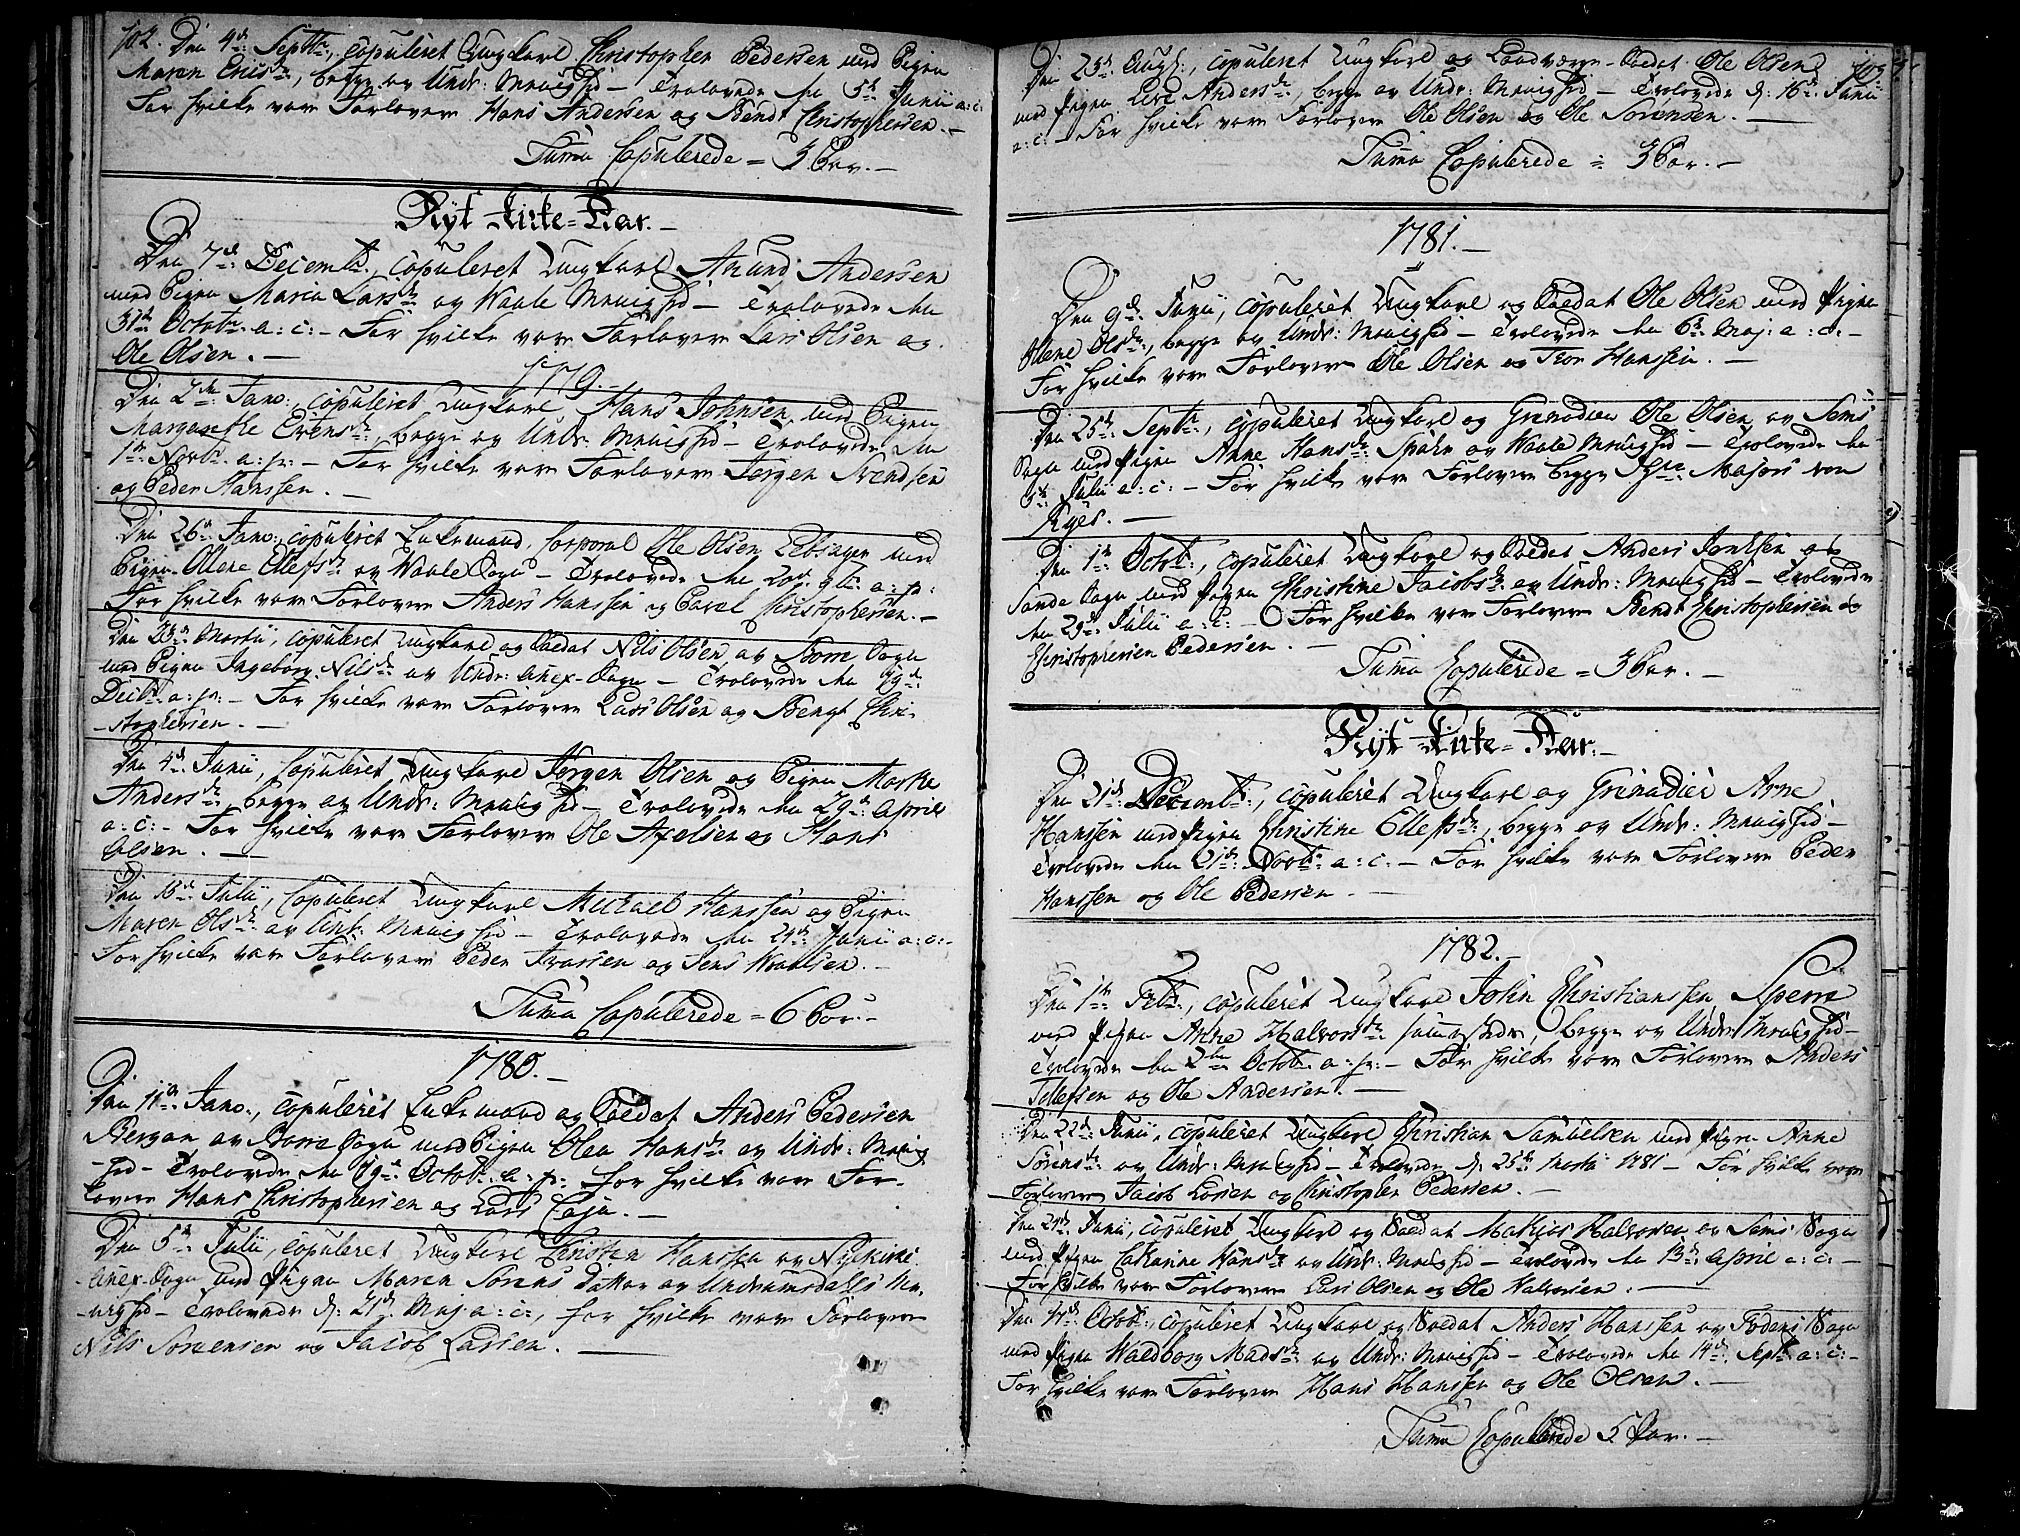 102. Den 4de Septbr:, copuleret Ungkarl Christopher Pedersen med Pigen
Maren Ericsdr:, begge av Undr: Menighed – Trolovede den 5te Junii a: c:
For hvilke vare Forlovere Hans Andersen og Bendt Christophersen. –
Suma Copulerede = 3 Par. –
Nyt Kirke=Aar. –
Den 7de Decembr:, copuleret Ungkarl Amund Andersen
med Pigen Maria Larsdr: av Waale Menighed – Trolovede den
31te Octobr: a: c: – For hvilke vare Forlovere Lars Olsen og
Ole Olsen. –
1779. –
Den 2den Jano:, copuleret Ungkarl Hans Johnsen med Pigen
Margrethe Evensdr: begge av Undr: Menighed – Trolovede den
1te Novbr: a: p: – For hvilke vare Forlovere Jørgen Svendsen
og Peder Hanssen. –
Den 26de Jano:, copuleret Enkemand, Corporal Ole Olsen med
Pigen Ollene Ellefsdr: av Waale Sogn – Trolovede den 20de 9br: a: p:
For hvilke vare Forlovere Anders Hanssen og Povel Christophersen. –
Den 23de Martii, copuleret Ungkarl og Soldat Nils Olsen av Borre Sogn
med Pigen Ingeborg Nilsdr: av Undr: Anex-Sogn – Trolovede den 19de
Decbr: a: p: – For hvilke vare Forlovere Lars Olsen og Bengt Chri-
stophersen. –
Den 4de Junii, Copuleret Ungkarl Jørgen Olsen og Pigen Marthe
Andersdr: begge av Undr: Menighed – Trolovede den 29de April
a: c: – For hvilke vare Forlovere Ole Axelsen og Hans
Olsen. –
Den 18de Julii, Copuleret Ungkarl Michael Hanssen og Pigen
Maren Olsdr: av Undr: Menighed – Trolovede den 24de Junii a: c: –
For hvilke vare Forlovere Peder Frassen og Jens Knudsen. –
Suma Copulerede = 6 Par. –
1780. –
Den 11te Jano:, copuleret Enkemand og Soldat Anders Pedersen
Bergan av Borre Sogn med Pigen Olea Hansdr: av Undr: Menig
-hed – Trolovede den 19de Octobr: a: p: for hvilke vare For-
lovere Hans Christophersen og Lars Caja. –
Den 5te Julii, copuleret Ungkarl Christen Hanssen av Nykirke
Anex-Sogn med Pigen Maren Sørens datter av Undrumsdalls Me-
-nighed – Trolovede d: 21de Maj. a: c:, for hvilke vare Forlovere
Nils Sørensen og Jacob Larsen. –
Den 23de Aug:, copuleret Ungkarl og Landværn-Soldat Ole Olsen 103.
med Pigen Lise Andersdr: begge av Undr: Menighed – Trolovede d: 16de Junii
a: c: – For hvilke vare Forlovere Ole Olsen og Ole Sørensen. –
Suma Copulerede = 3 Par. –
1781. –
Den 9de Junii, copuleret Ungkarl og Soldat Ole Olsen med Pigen
Ollene Olsdr:, begge av Undr: Menighed – Trolovede den 6te Maj: a: c: –
For hvilke vare Forlovere Ole Olsen og Tron Hanssen. –
Den 25de Septbr:, copuleret Ungkarl og Grenadier Ole Olsen av Sems
Sogn med Pigen Anne Hansdr: Spørn av Waale Menighed – Trolovede den
8de Julii a: c: – For hvilke vare Forlovere begge Major von
Ryes. –
Den 1te Octobr:, copuleret Ungkarl og Soldat Anders Joelsen av
Sande Sogn med Pigen Christine Jacobsdr: av Undr: Menighed – Trolovede
den 29de Julii a: c: – For hvilke vare Forlovere Bendt Christophersen og
Christophersen Pedersen. –
Suma Copulerede = 3 Par. –
Nyt Kirke=Aar. –
Den 21de Decembr:, copuleret Ungkarl og Grenadier Arne
Hanssen med Pigen Christine Ellefsdr:, begge av Undr: Menighed –
Trolovede den 21de Novbr: a: c: – For hvilke vare Forlovere Peder
Hanssen og Ole Pedersen. –
1782. –
Den 1te Febr:, copuleret Ungkarl John Christianssen Spern
med Pigen Anne Halvorsdr: sammestedz, begge av Undr: Menighed –
Trolovede den 2den Octobr: a: p: – For hvilke vare Forlovere Anders
Tollefsen og Ole Andersen. –
Den 22de Junii, copuleret Ungkarl Christian Samuelsen med Pigen Anne
Sørensdr: av Undr: Menighed – Trolovede d: 25de Martii 1781 – For hvilke vare
Forlovere Jacob Larsen og Christopher Pedersen. –
Den 24de Junii, copuleret Ungkarl og Soldat Mathias Halvorsen av Sems Sogn
med Pigen Cathrine Hansdr: av Undr: Menighed – Trolovede den 13de April a: c: –
For hvilke vare Forlovere Lars Olsen og Ole Halvorsen. –
Den 4de Octobr:, copuleret Ungkarl og Soldat Anders Hanssen av Fodens Sogn
med Pigen Waldborg Madsdr: av Undr: Menighed – Trolovede den 14de Septbr: a: c: –
For hvilke vare Forlovere Hans Hanssen og Ole Olsen. –
Suma Copulerede 5 Par. –